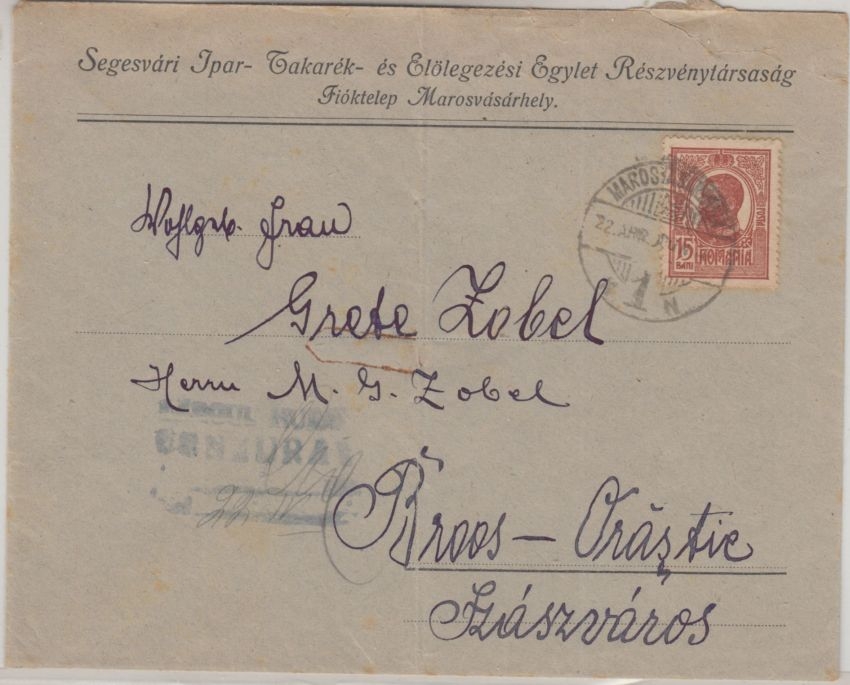 Segesvári Ipar- Takarék- és Előlegezési Egylet Részvénytársaság
Fióktelep Marosvásárhely.
22. APR.
1 N
15
BANI
ROMANIA
Wohlgeb. Frau
Grete Zobel
Herrn M. G. Zobel
CENZURAT
Broos – Orăștie
Szászváros